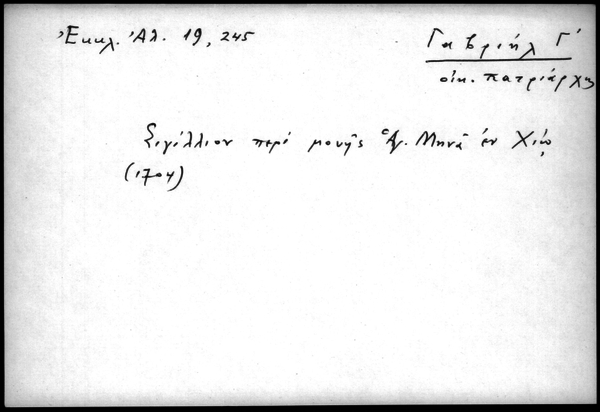 Ἐκκλ. Ἀλ. 19, 245
Γαβριήλ Γ΄
οἰκ. πατριάρχης
Σιγίλλιον περί μονῆς Ἁγ. Μηνᾶ ἐν Χίῳ
(1704)